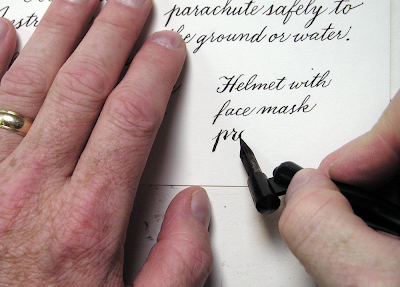 parachute safely to
the ground or water!
Helmet with
face mask
pre